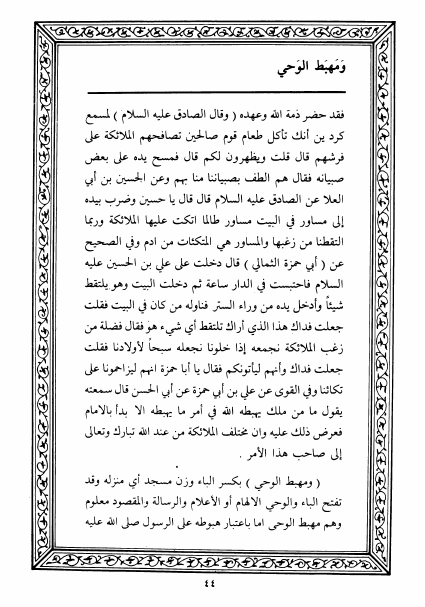 وَمَهبَط الوَحي
فقد حضر ذمة الله وعهده ( وقال الصادق عليه السلام ) لمسمع
كرد ين أنك تأكل طعام قوم صالحين تصافحهم الملائكة على
فرشهم قال قلت ويظهرون لكم قال فمسح يده على بعض
صبيانه فقال هم الطف بصبياننا منا بهم وعن الحسين بن أبي
العلا عن الصادق عليه السلام قال قال يا حسين وضرب بيده
إلى مساور في البيت مساور طالما اتكت عليها الملائكة وربما
التقطنا من زغبها والمساور هي المتكئات من ادم وفي الصحيح
عن ( أبي حمزة الثمالي ) قال دخلت على علي بن الحسين عليه
السلام فاحتبست في الدار ساعة ثم دخلت البيت وهو يلتقط
شيئاً وأدخل يده من وراء الستر فناوله من كان في البيت فقلت
جعلت فداك هذا الذي أراك تلتقط أي شيء هو فقال فضلة من
زغب الملائكة نجمعه إذا خلونا نجعله سبحاً لأولادنا فقلت
جعلت فداك وأنهم ليأتونكم فقال يا أبا حمزة انهم ليزاحمونا على
تكائنا وفي القوى عن علي بن أبي حمزة عن أبي الحسن قال سمعته
يقول ما من ملك يهبطه الله في أمر ما يهبطه الا بدأ بالامام
فعرض ذلك عليه وان مختلف الملائكة من عند الله تبارك وتعالى
إلى صاحب هذا الأمر .
( ومهبط الوحي ) بكسر الباء وزن مسجد أي منزله وقد
تفتح الباء والوحي الالهام أو الأعلام والرسالة والمقصود معلوم
وهم مهبط الوحى اما باعتبار هبوطه على الرسول صلى الله عليه
٤٤